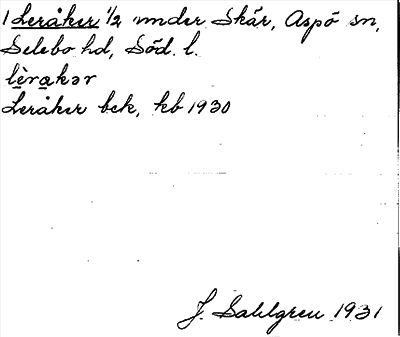 1 Leråker 1/2 under Skär, Aspö sn,
Selebo hd, Söd. l.
lèrakər
Leråker bck, kb 1930
J. Sahlgren 1931